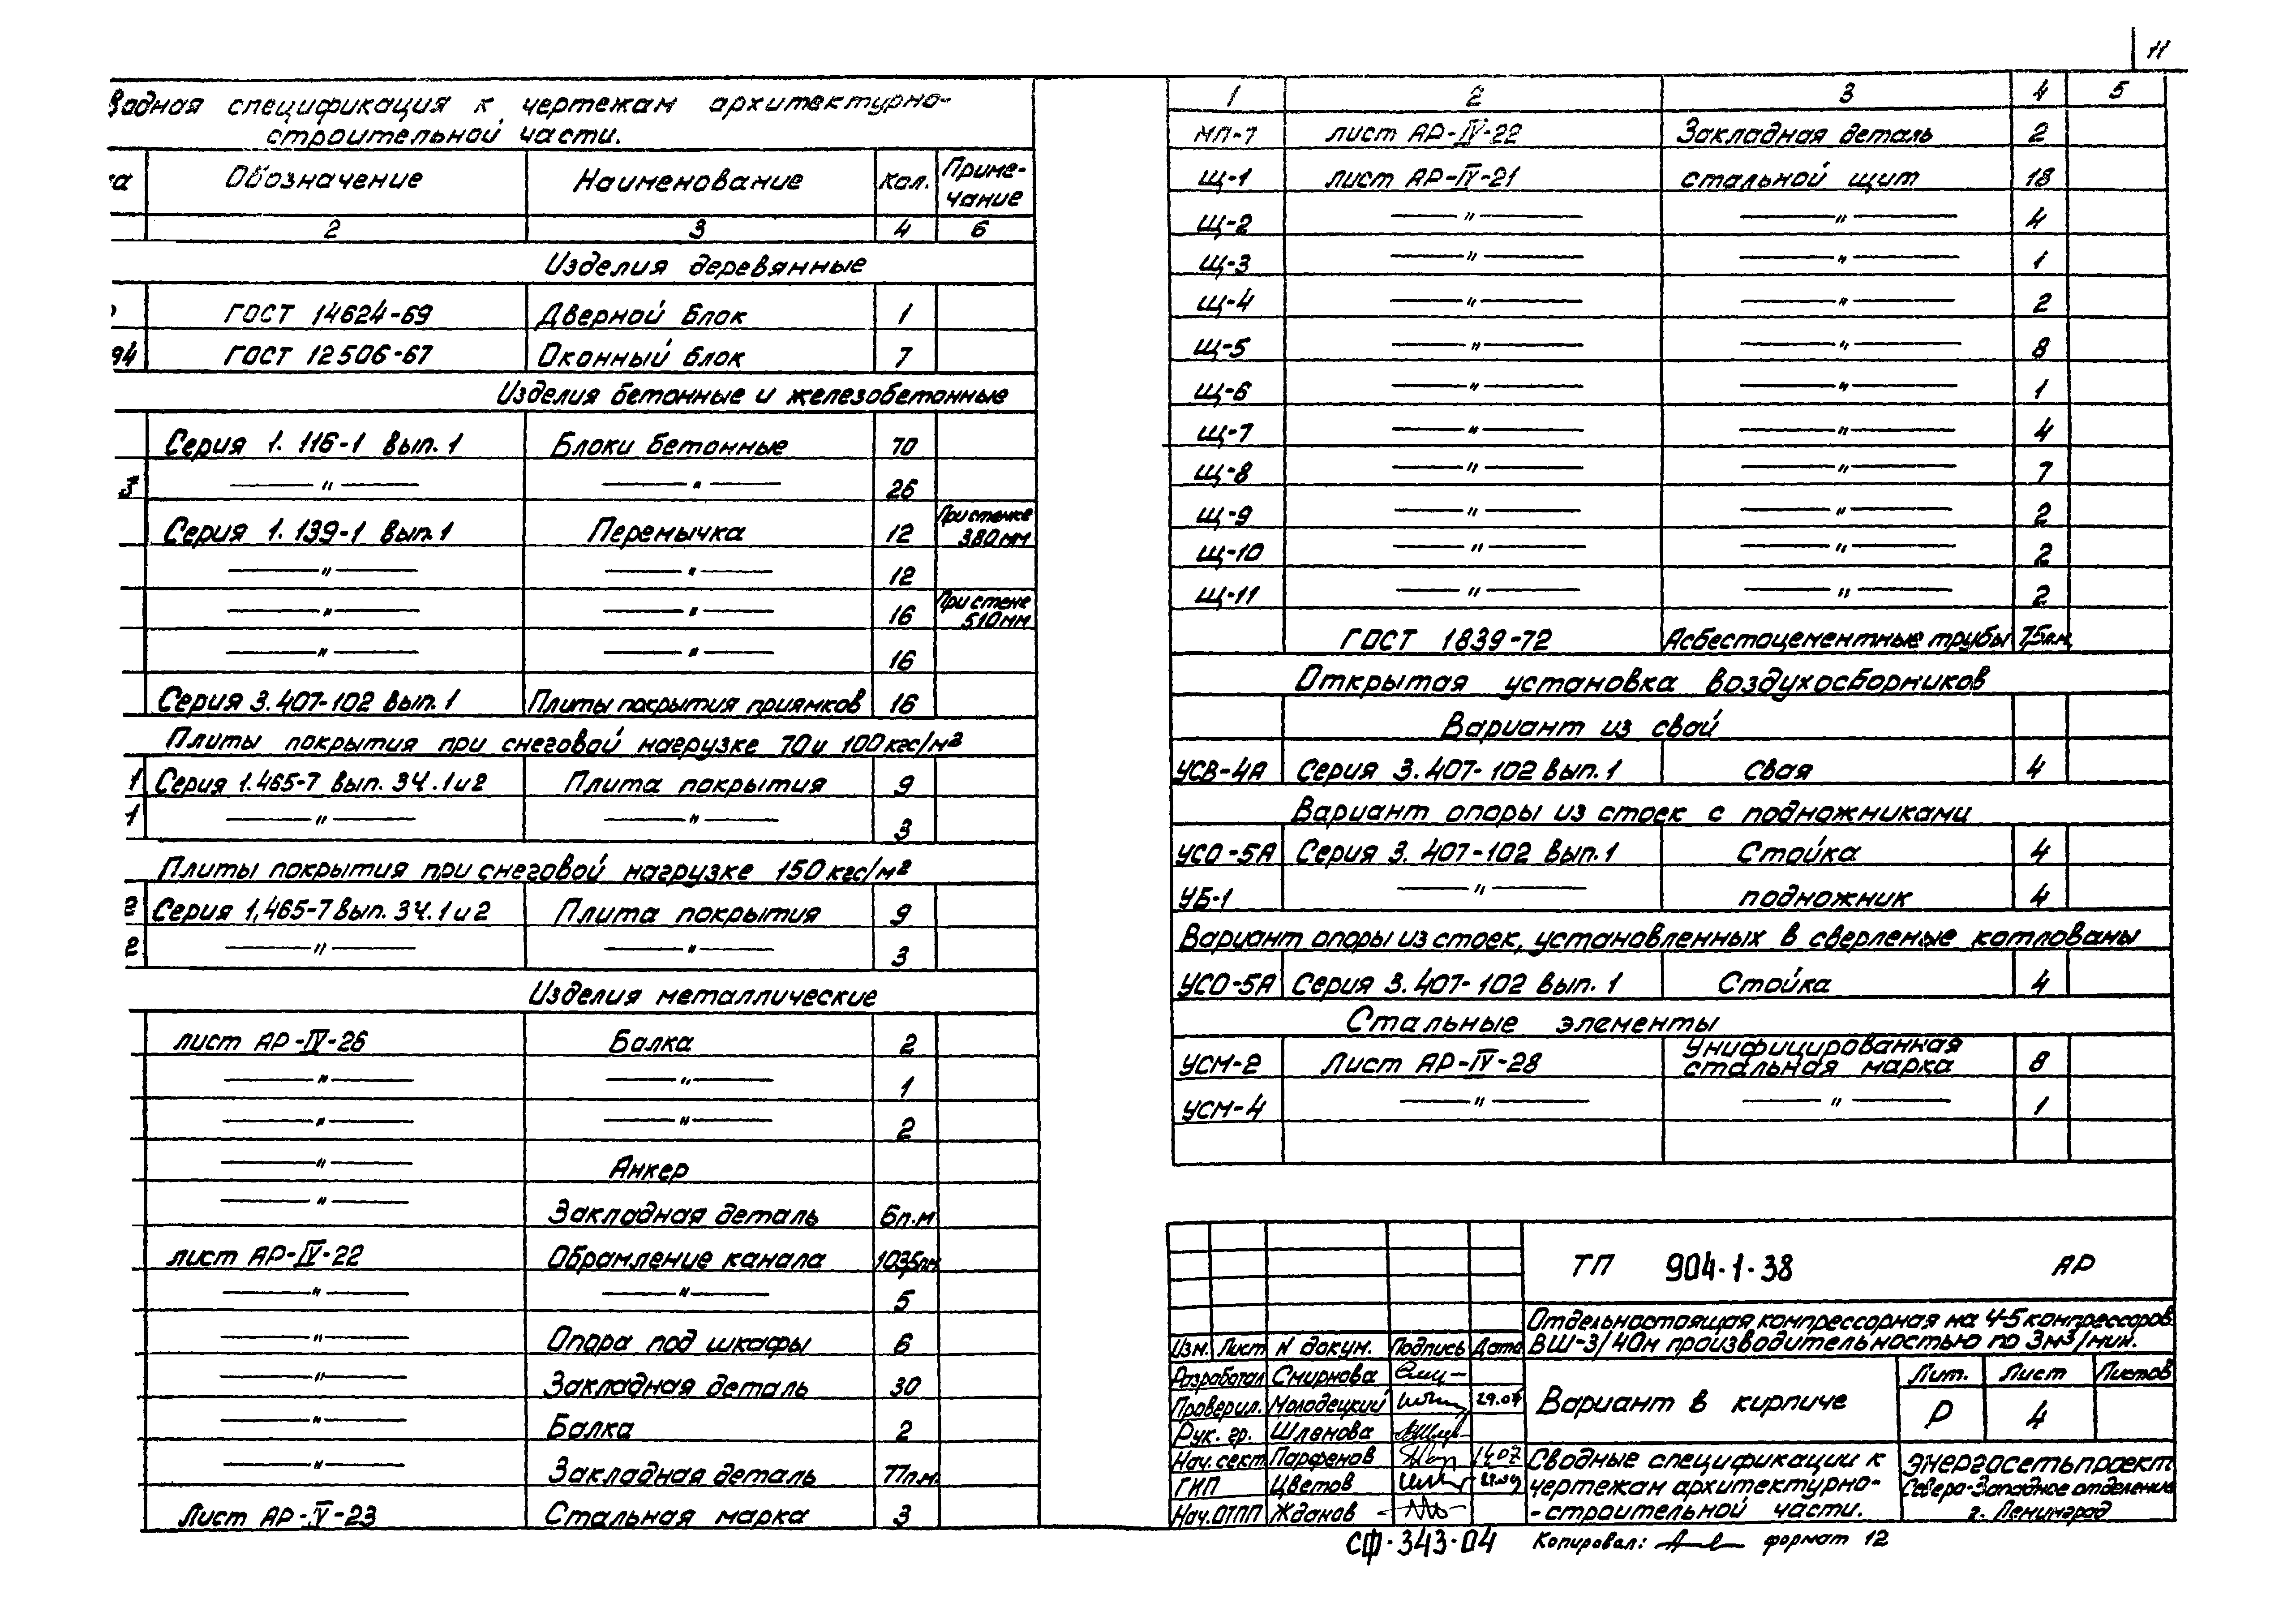 11
водная спецификация к чертежам архитектурно-
строительной части.
ка Обозначение Наименование Кол. Приме-
чание
2 3 4 6
Изделия деревянные
ГОСТ 14624-69 Дверной блок 1
94 ГОСТ 12506-67 Оконный блок 7
Изделия бетонные и железобетонные
Серия 1. 116-1 вып. 1 Блоки бетонные 70
3 — " — — " — 26
Серия 1. 139-1 вып. 1 Перемычка 12 При стенке
380 мм
— " — — " — 12
— " — — " — 16 При стене
510 мм
— " — — " — 16
Серия 3.407-102 вып. 1 Плиты покрытия приямков 16
Плиты покрытия при снеговой нагрузке 70 и 100 кгс/м²
1 Серия 1.465-7 вып. 3 ч. 1 и 2 Плита покрытия 9
1 — " — — " — 3
Плиты покрытия при снеговой нагрузке 150 кгс/м²
2 Серия 1,465-7 вып. 3 ч. 1 и 2 Плита покрытия 9
2 — " — — " — 3
Изделия металлические
лист АР-IV-26 Балка 2
— " — — " — 1
— " — — " — 2
— " — Анкер
— " — Закладная деталь 6 п.м
лист АР-IV-22 Обрамление канала
— " — — " — 5
— " — Опора под шкафы 6
— " — Закладная деталь 30
— " — Балка 2
— " — Закладная деталь 77 п.м.
Лист АР-V-23 Стальная марка 3
1 2 3 4 5
МП-7 лист АР-IV-22 Закладная деталь 2
Щ-1 лист АР-IV-21 стальной щит 18
Щ-2 — " — — " — 4
Щ-3 — " — — " — 1
Щ-4 — " — — " — 2
Щ-5 — " — — " — 8
Щ-6 — " — — " — 1
Щ-7 — " — — " — 4
Щ-8 — " — — " — 7
Щ-9 — " — — " — 2
Щ-10 — " — — " — 2
Щ-11 — " — — " — 2
ГОСТ 1839-72 Асбестоцементные трубы
Открытая установка воздухосборников
Вариант из свай
УСВ-4А Серия 3.407-102 вып. 1 свая 4
Вариант опоры из стоек с подножниками
УСО-5А Серия 3. 407-102 вып. 1 Стойка 4
УБ-1 — " — подножник 4
Вариант опоры из стоек, установленных в сверленые котлованы
УСО-5А Серия 3.407-102 вып. 1 Стойка 4
Стальные элементы
УСМ-2 Лист АР-IV-28 Унифицированная
стальная марка 8
УСМ-4 — " — — " — 1
ТП 904-1-38 АР
Отдельностоящая компрессорная на 4-5 компрессоров
ВШ-3/40м производительностью по 3м³/мин.
Изм. Лист N докум. Подпись Дата
Разработал Смирнова
Проверил. Молодецкий
Рук. гр. Шленова
Нач. сект. Парфенов
ГИП Цветов
Нач. ОТПП Жданов
Вариант в кирпиче
Лит. Лист Листов
Р 4
Сводные спецификации к
чертежам архитектурно-
-строительной части.
Энергосетьпроект
Северо-Западное отделение
г. Ленинград
СФ-343-04 Копировал: формат 12